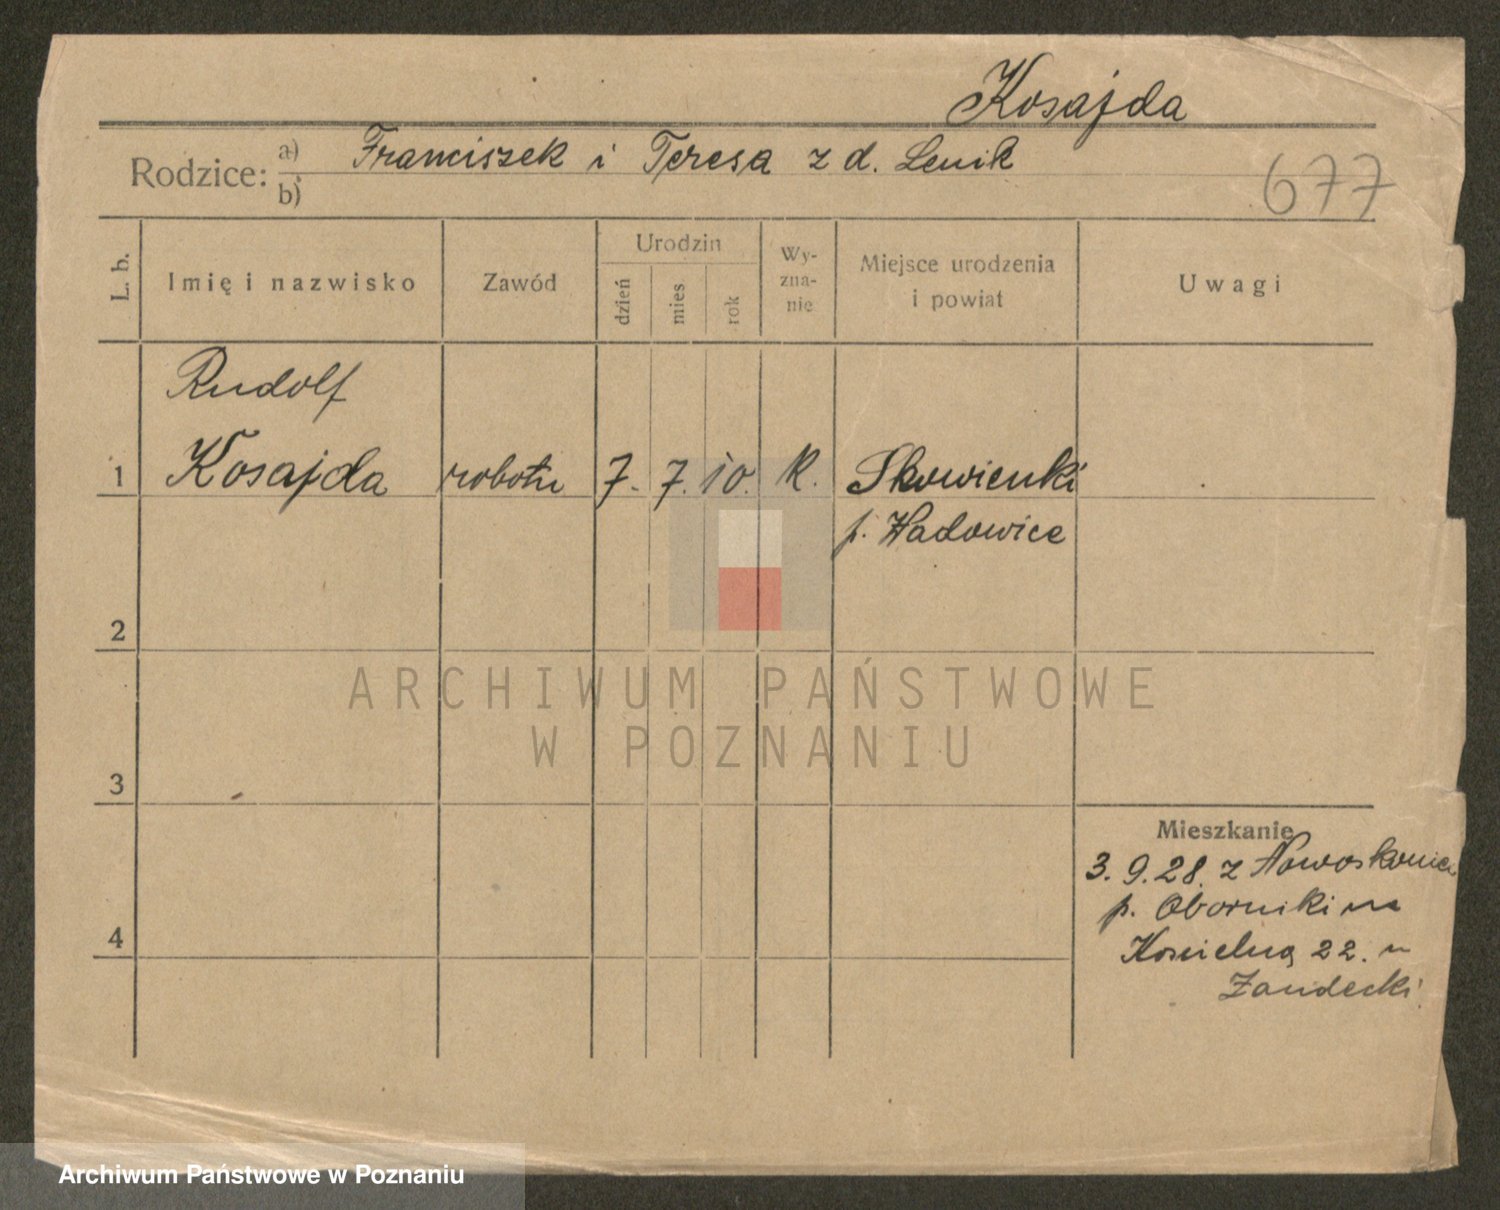 Kosajda
Rodzice: a) Franciszek i Teresa z d. Lenik
b)
677
L. b.
Imię i nazwisko
Zawód
Urodzin
dzień
mies.
rok
Wy-
zna-
nie
Miejsce urodzenia
i powiat
Uwagi
Rudolf
1 Kosajda robotn 7. 7. 10. k. Skowienki
p. Wadowice
2
ARCHIWUM PAŃSTWOWE
W POZNANIU
3
Mieszkanie
3. 9. 28. z
p. Oborniki na
Kościelną 22. u
4
Żandecki
Archiwum Państwowe w Poznaniu